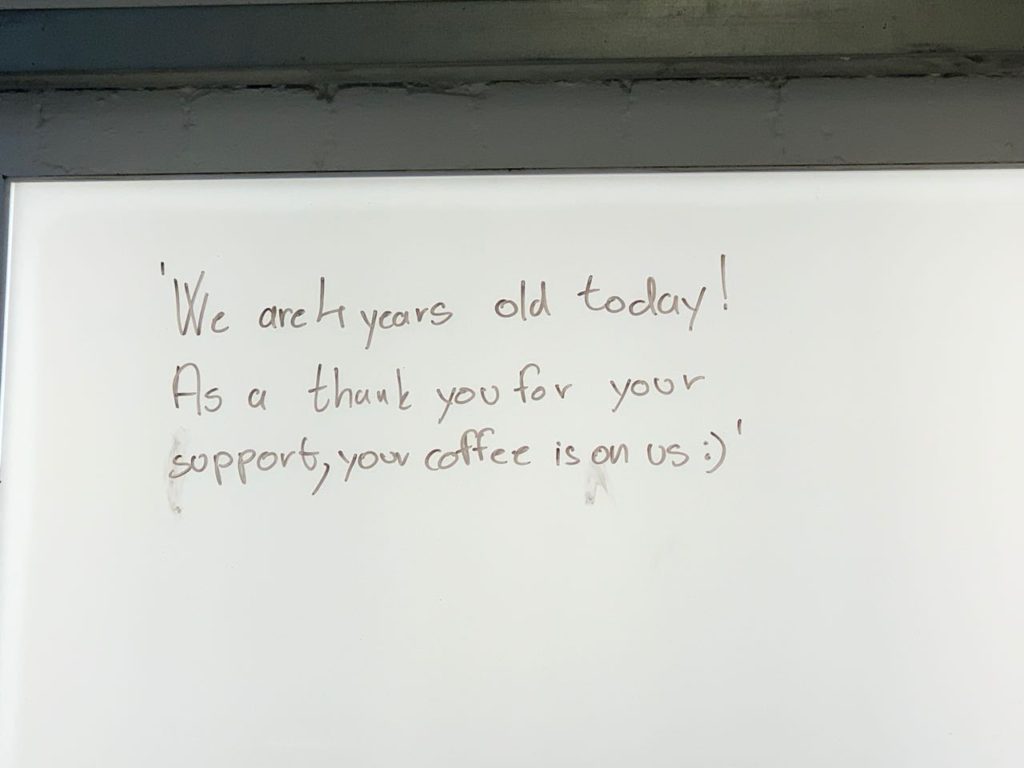 'We are 4 years old today!
As a thank you for your
support, your coffee is on us :)'